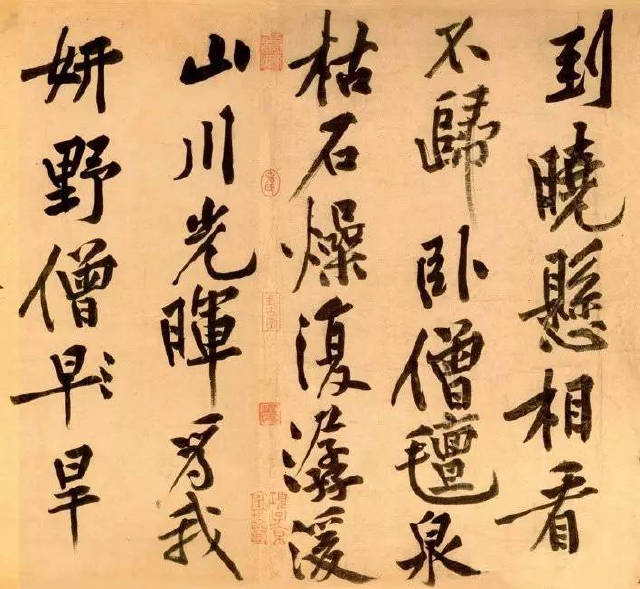 到曉懸相看
不歸卧僧氈泉
枯石燥復潺湲
山川光暉為我
妍野僧早旱